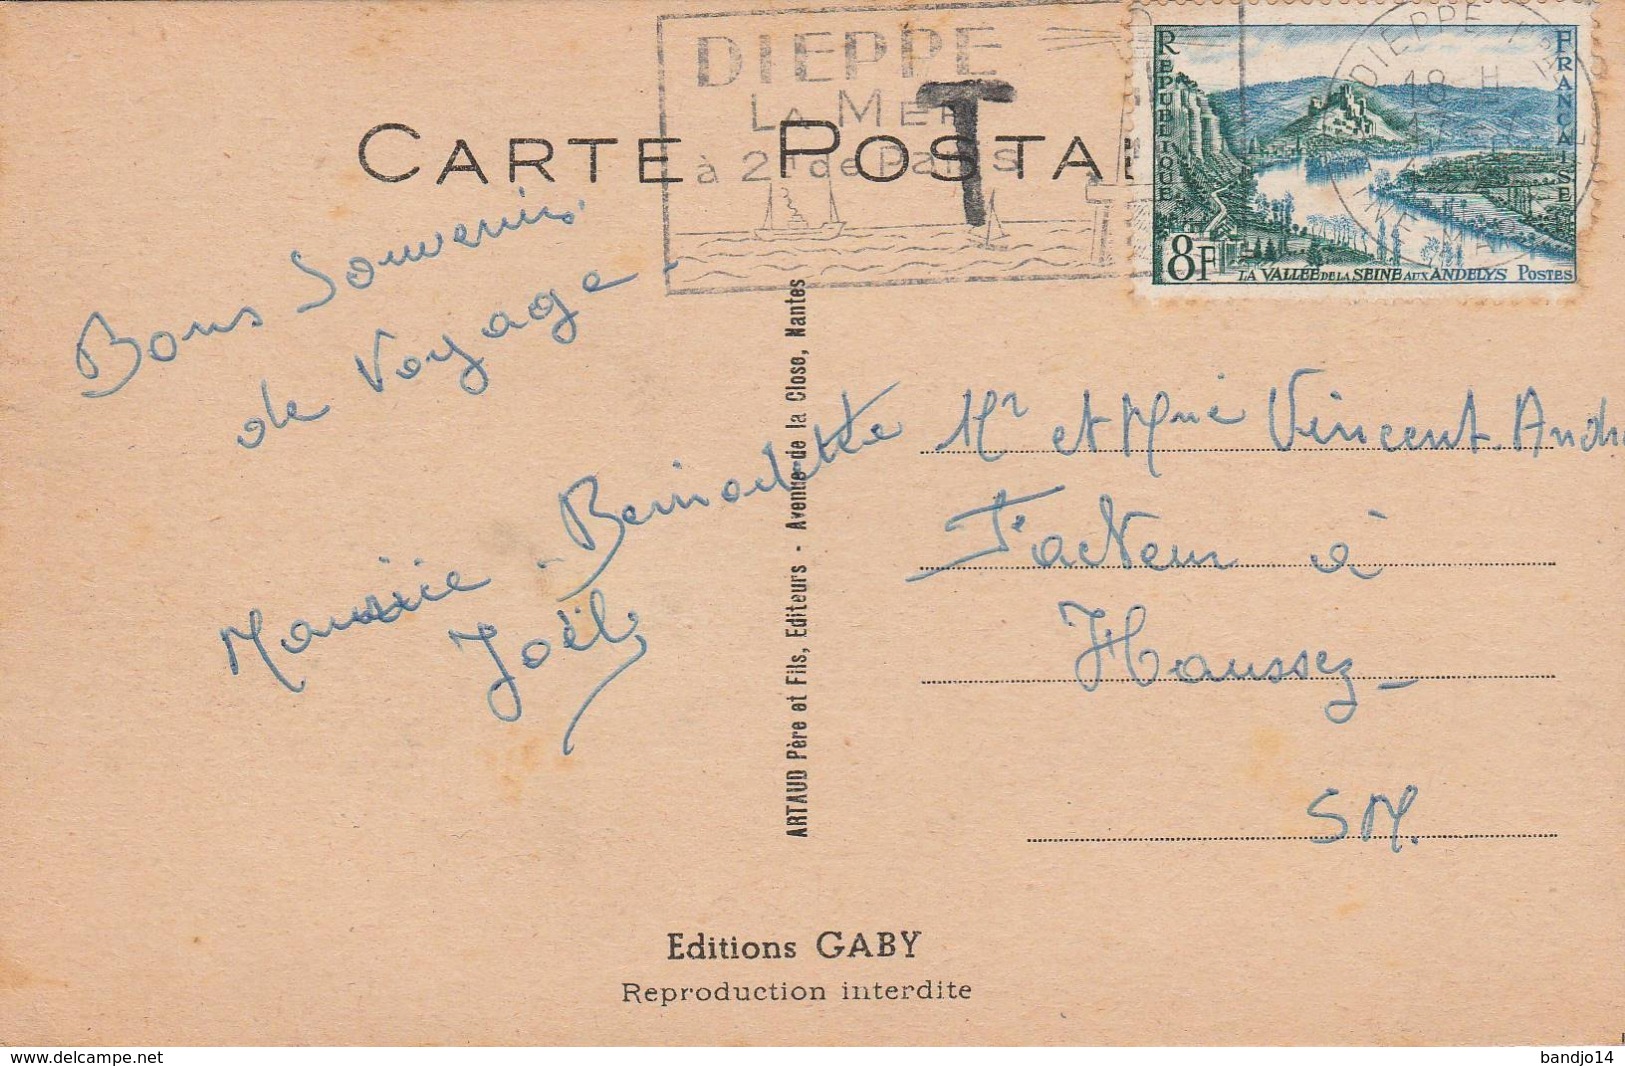 DIEPPE
LA MER
à 2h de Paris
T
CARTE POSTA
RÉPUBLIQUE FRANÇAISE
8F
LA VALLÉE DE LA SEINE AUX ANDELYS POSTES
DIEPPE
18 H
Bons Souvenirs
de Voyage -
Maurice - Bernadette
Joël
ARTAUD Père et Fils, Editeurs - Avenue de la Close, Nantes
Mr et Mme Vincent. Andr
Facteur à
Haussez
SM.
Editions GABY
Reproduction interdite
www.delcampe.net
bandjo14